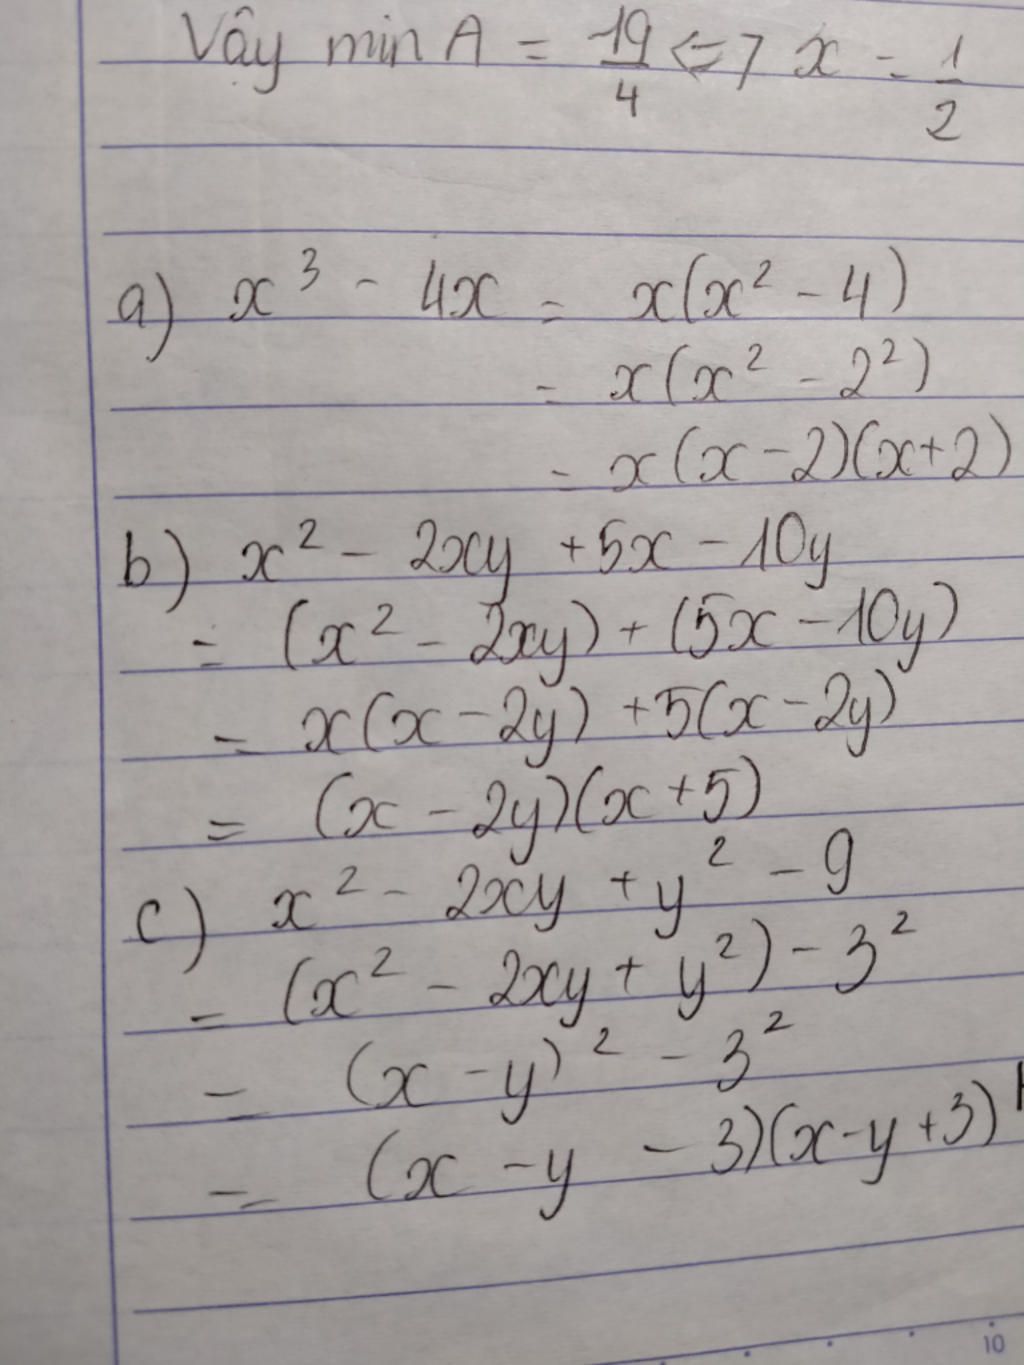 Vậy min A = 19/4 <=> x = 1/2
a) x³ - 4x = x(x² - 4)
= x(x² - 2²)
= x(x - 2)(x + 2)
b) x² - 2xy + 5x - 10y
= (x² - 2xy) + (5x - 10y)
= x(x - 2y) + 5(x - 2y)
= (x - 2y)(x + 5)
c) x² - 2xy + y² - 9
= (x² - 2xy + y²) - 3²
= (x - y)² - 3²
= (x - y - 3)(x - y + 3)
10